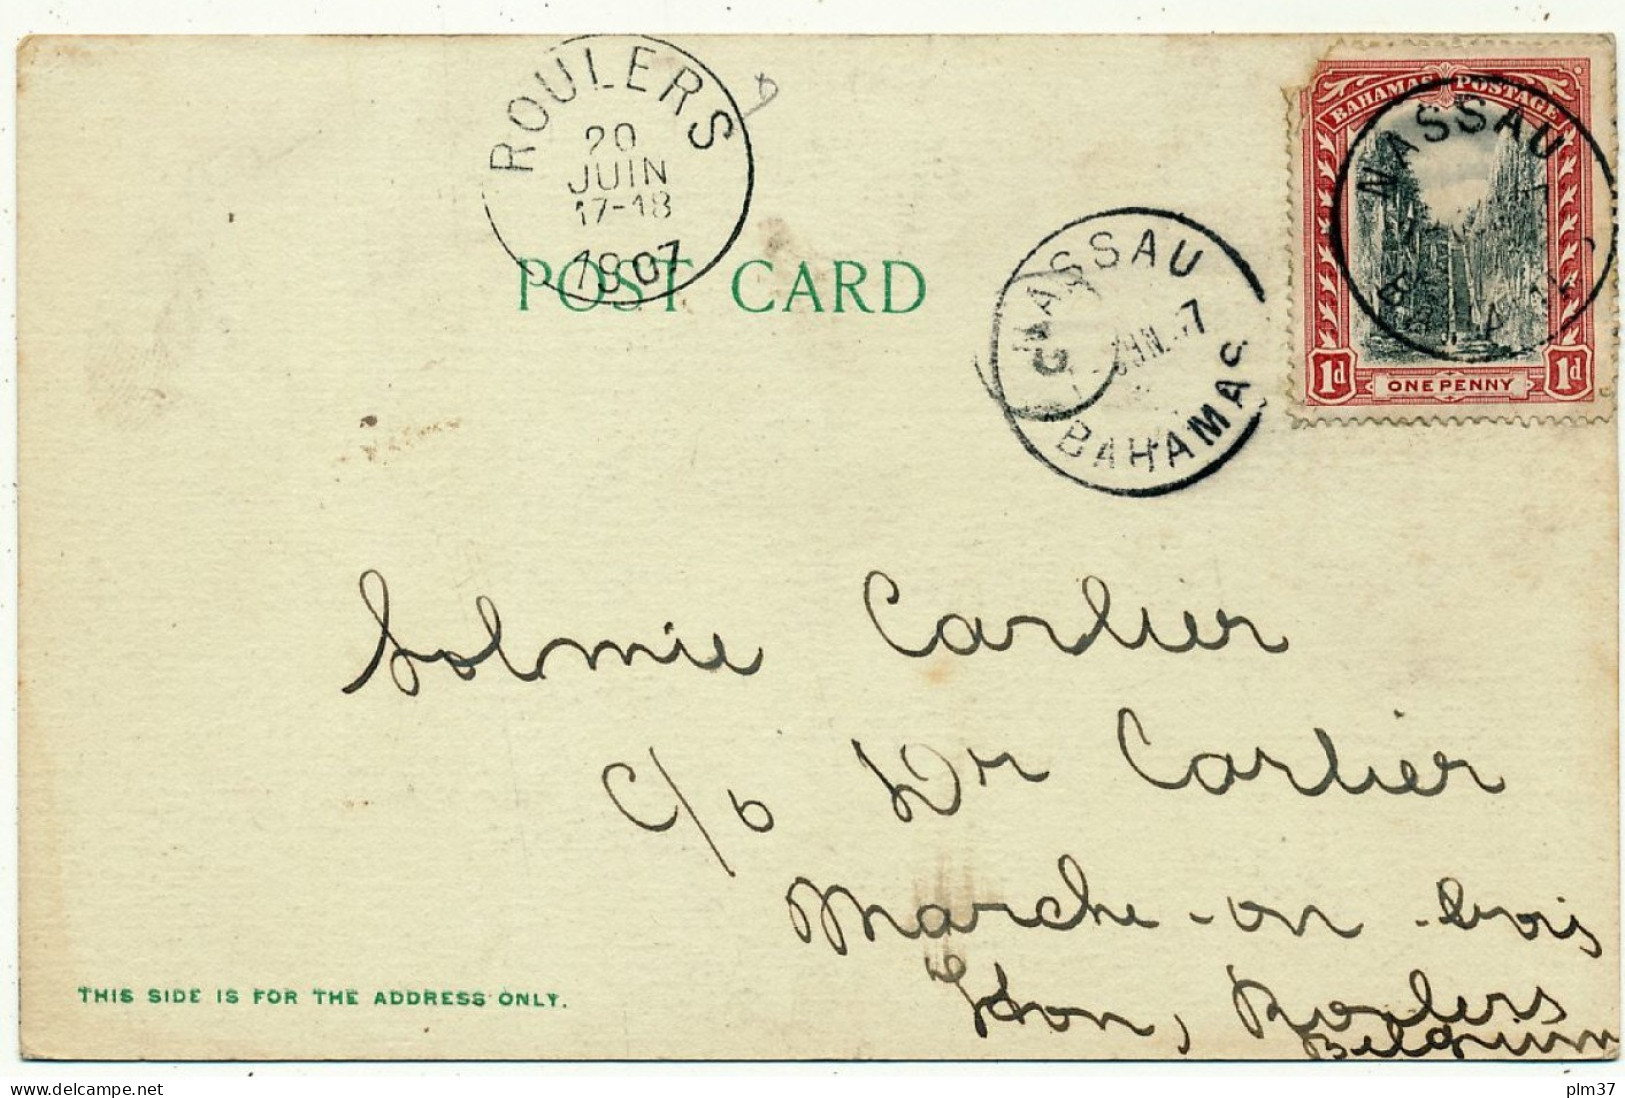 ROULERS
20
JUIN
17-18
1907
POST CARD
NASSAU
BAHAMAS
BAHAMAS POSTAGE
NASSAU
1d ONE PENNY 1d
Solmie Carlier
c/o Dr Carlier
Marche-on-bois
Hon, Roulers
Belgium
THIS SIDE IS FOR THE ADDRESS ONLY.
delcampe.net
plm37